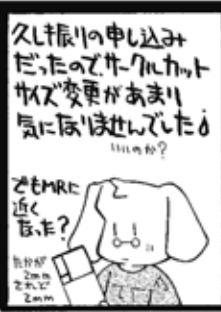 久し振りの申し込み
だったので、サークルカット
サイズ変更があまり
気になりませんでした💧
いいのか？
でもMRに
近く
なった？
たかが
2mm
されど
2mm